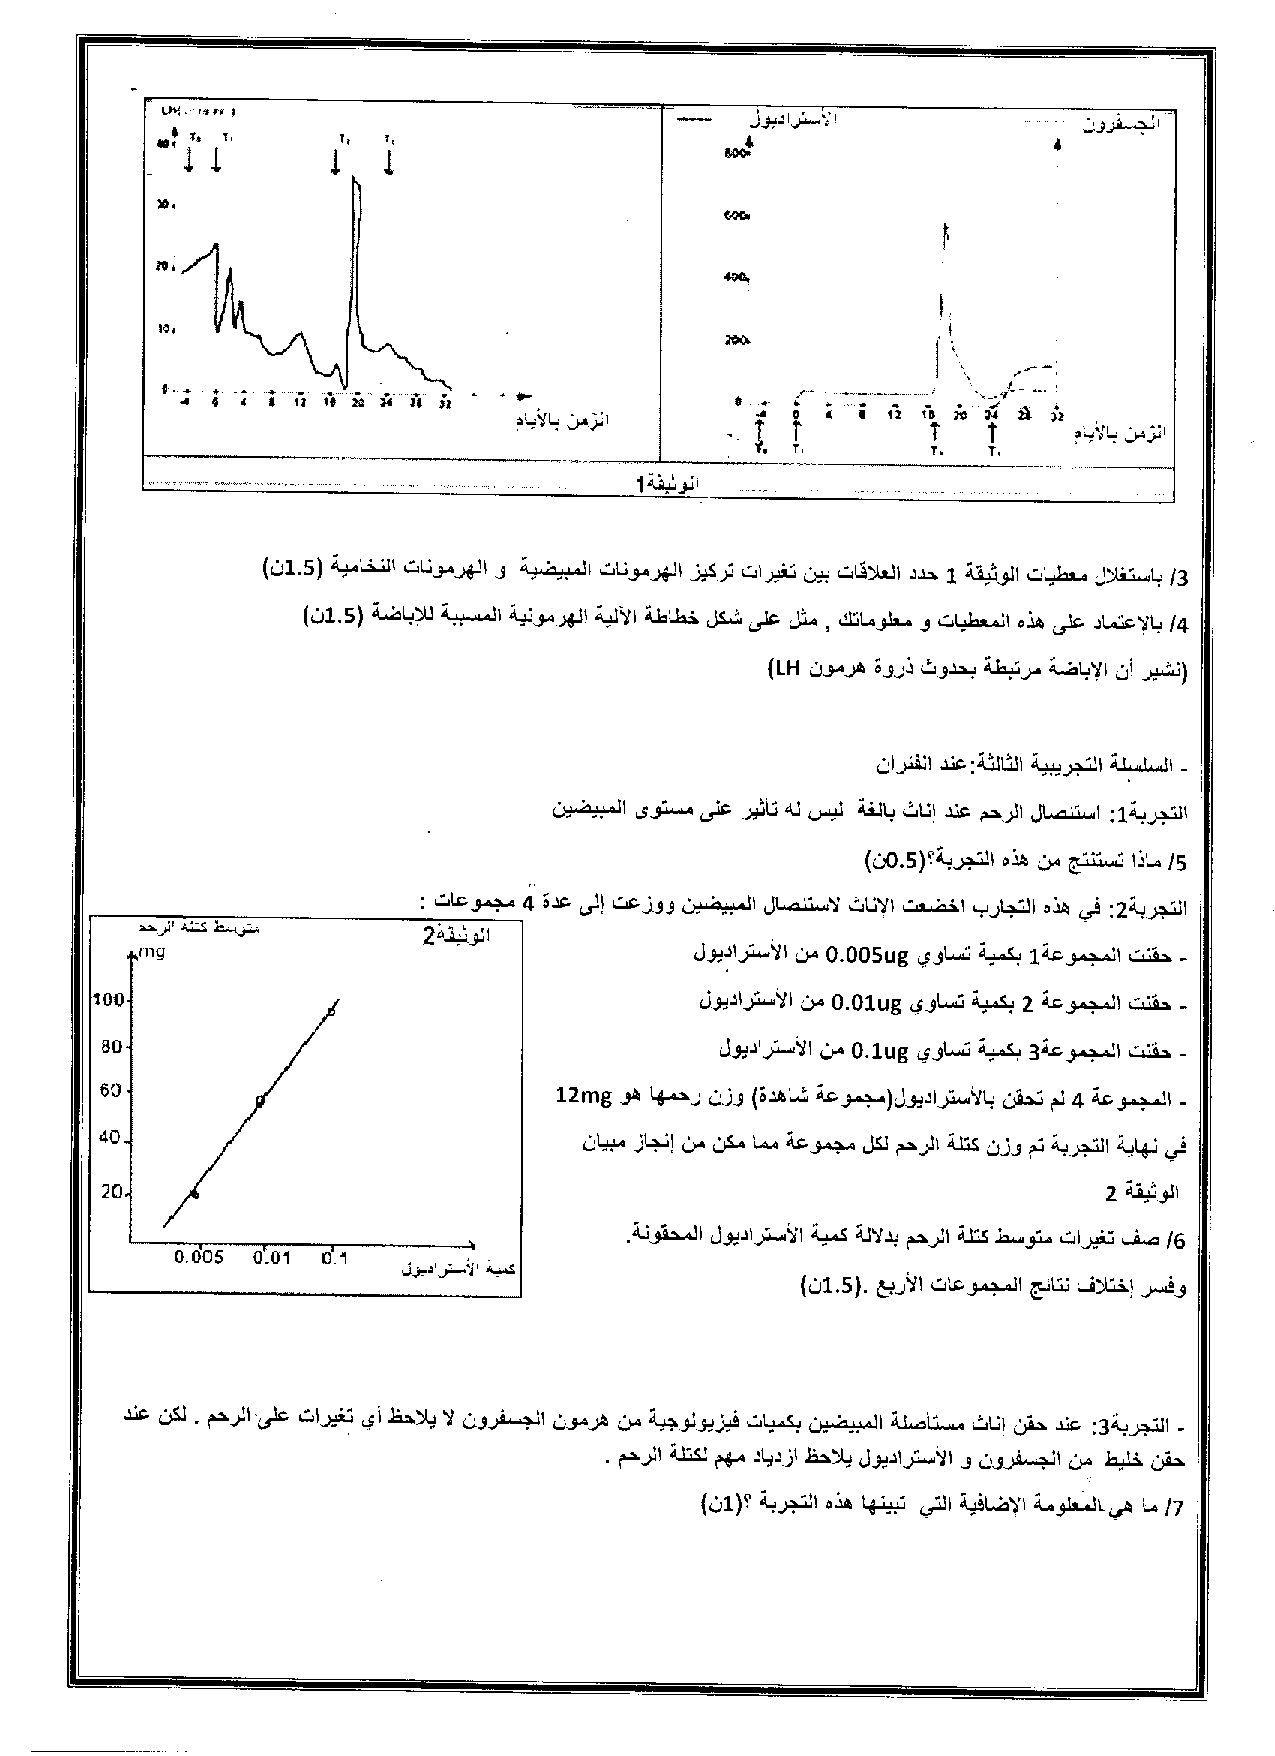 الأستراديول
الجسفرون
800
600
400
200
0
-4 0 4 8 12
24
32
الزمن بالأيام
20
10
0
-4 0 4 8 12
32
الزمن بالأيام
الوثيقة1
3/ باستغلال معطيات الوثيقة 1 حدد العلاقات بين تغيرات تركيز الهرمونات المبيضية و الهرمونات النخامية (1.5ن)
4/ بالاعتماد على هذه المعطيات و معلوماتك , مثل على شكل خطاطة الآلية الهرمونية المسببة للاباضة (1.5ن)
(نشير أن الاباضة مرتبطة بحدوث ذروة هرمون LH)
- السلسلة التجريبية الثالثة:عند الفئران
التجربة1: استئصال الرحم عند إناث بالغة ليس له تأثير على مستوى المبيضين
5/ ماذا تستنتج من هذه التجربة؟(0.5ن)
التجربة2: في هذه التجارب اخضعت الاناث لاستئصال المبيضين ووزعت إلى عدة 4 مجموعات :
- حقنت المجموعة1 بكمية تساوي 0.005ug من الأستراديول
- حقنت المجموعة 2 بكمية تساوي 0.01ug من الأستراديول
- حقنت المجموعة3 بكمية تساوي 0.1ug من الأستراديول
- المجموعة 4 لم تحقن بالأستراديول(مجموعة شاهدة) وزن رحمها هو 12mg
في نهاية التجربة تم وزن كتلة الرحم لكل مجموعة مما مكن من إنجاز مبيان
الوثيقة 2
الوثيقة2
متوسط كتلة الرحم
mg
100
80
60
40
20
0.005 0.01 0.1
كمية الأستراديول
6/ صف تغيرات متوسط كتلة الرحم بدلالة كمية الأستراديول المحقونة.
وفسر إختلاف نتائج المجموعات الأربع .(1.5ن)
- التجربة3: عند حقن إناث مستأصلة المبيضين بكميات فيزيولوجية من هرمون الجسفرون لا يلاحظ أي تغيرات على الرحم . لكن عند
حقن خليط من الجسفرون و الأستراديول يلاحظ ازدياد مهم لكتلة الرحم .
7/ ما هي المعلومة الاضافية التي تبينها هذه التجربة ؟(1ن)